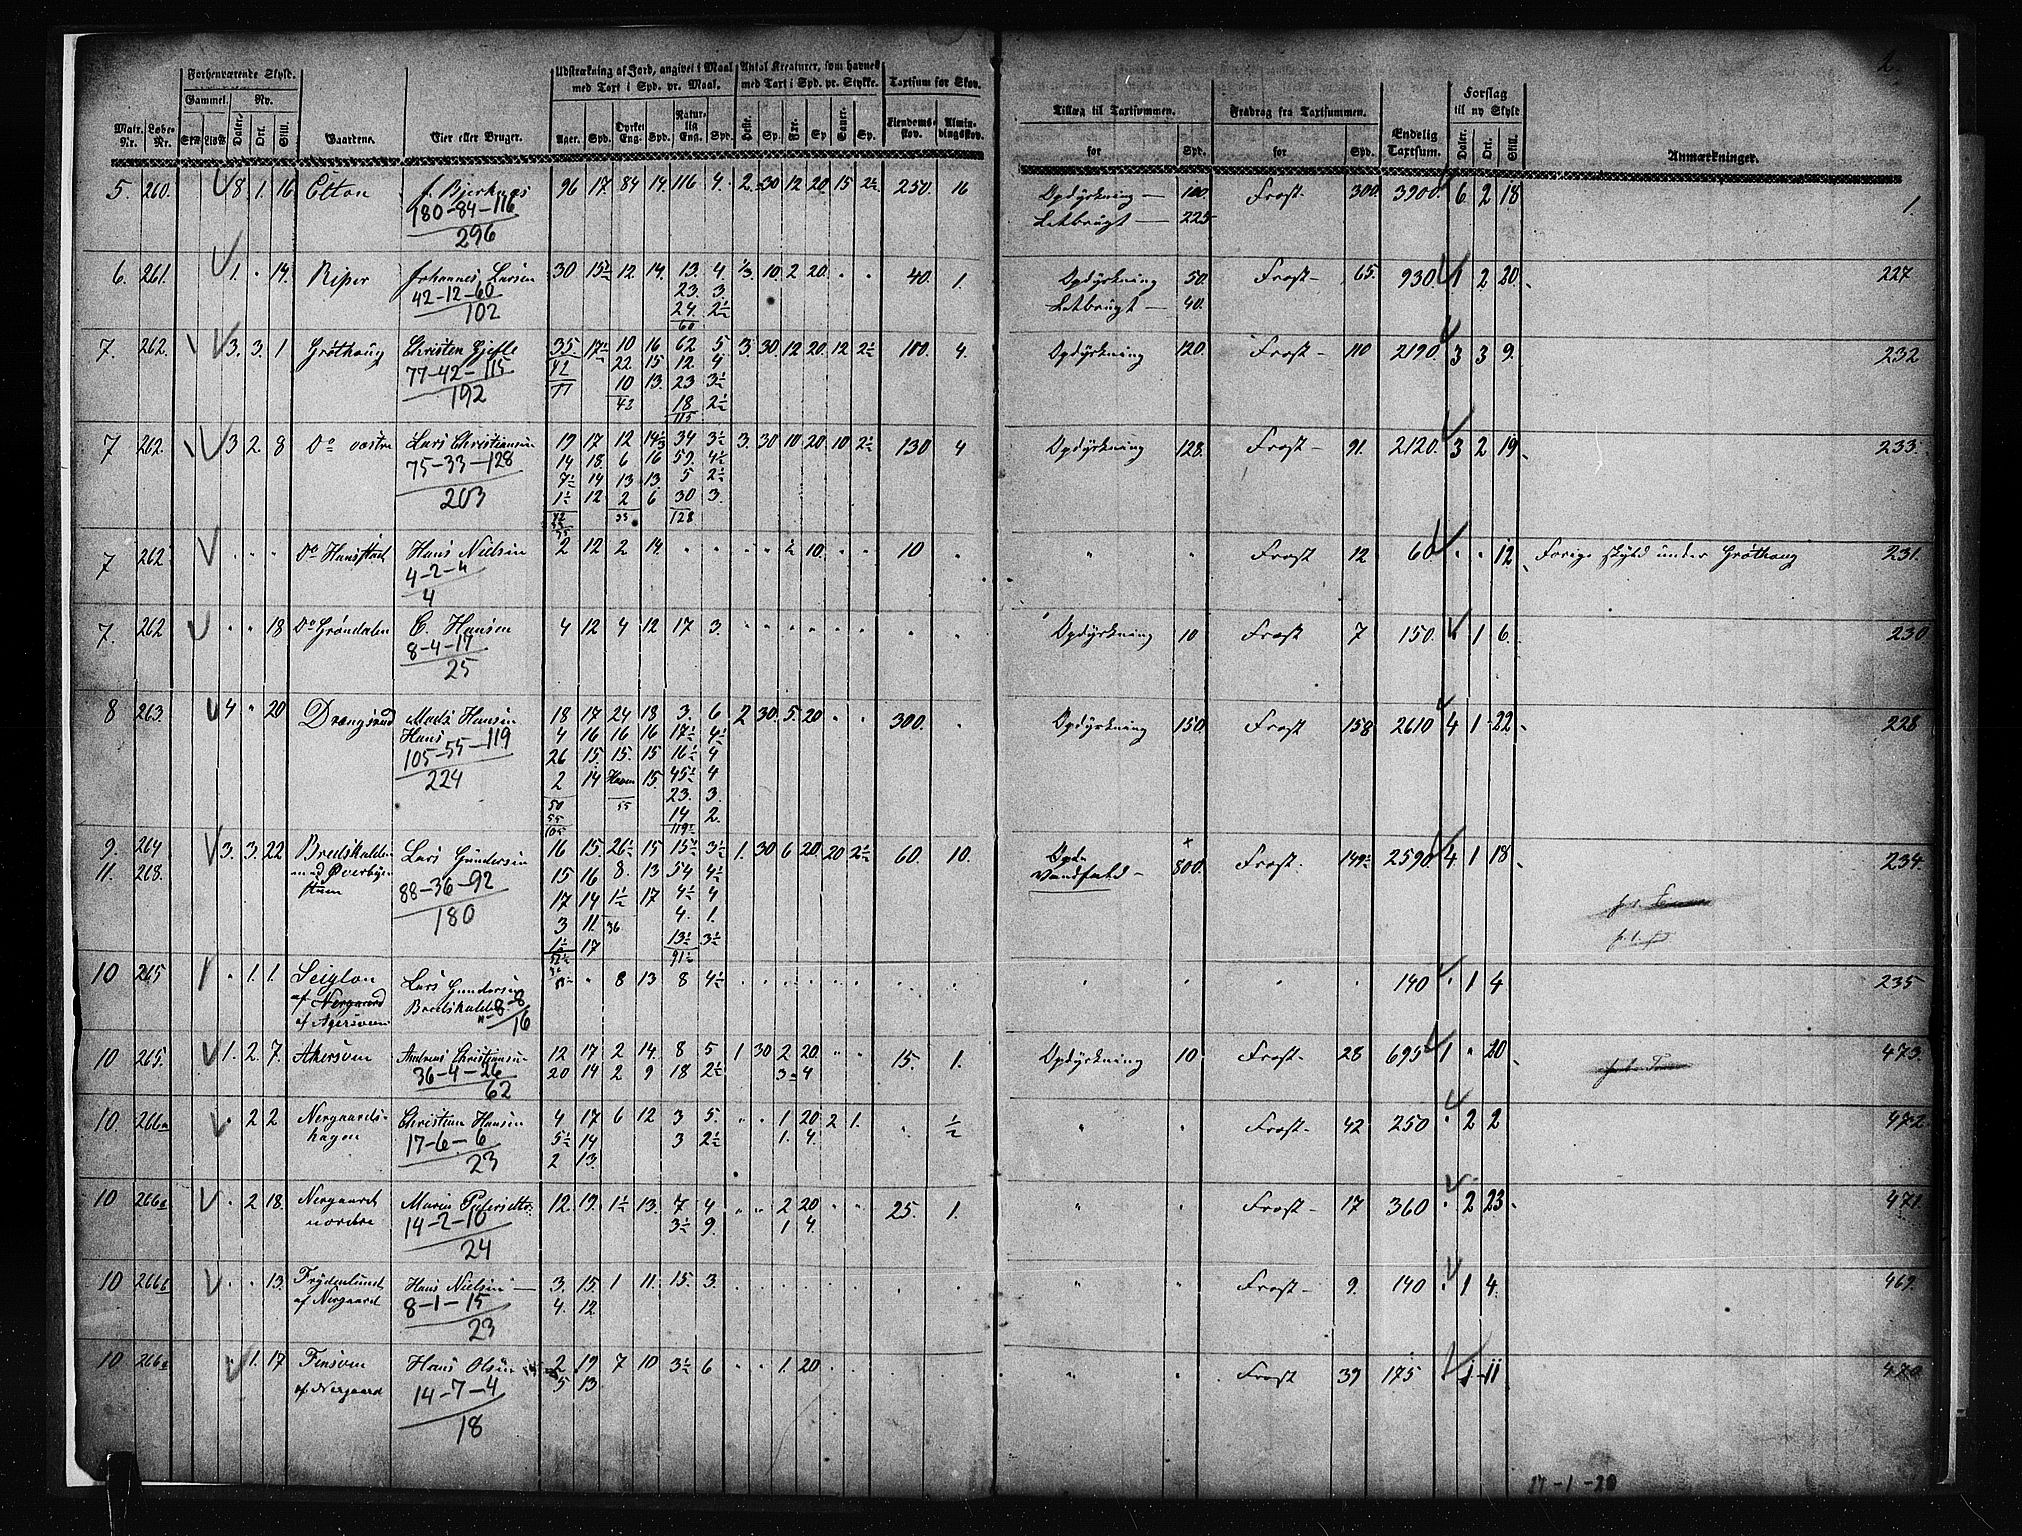 2.
Forhenværende Skyld. Udstrækning af Jord, angivet i Maal med Taxt i Spd. pr. Maal. Antal Kreaturer, som havnes med Taxt i Spd. pr. Stykke. Taxtsum for Skov. Tillæg til Taxtsummen. Fradrag fra Taxtsummen. Endelig Taxtsum. Forslag til ny Skyld
Gammel. Ny.
Matr. Nr. Løbe-Nr. Daler. Ort. Sk. Gaardene. Eier eller Bruger. Ager. Spd. Dyrket Eng. Spd. Naturlig Eng. Spd. Heste. Sp. Kør. Sp. Sauer. Sp. Eiendomsskov. Almindingsskov. for Spd. for Spd. Daler. Ort. Skill. Anmærkninger.
5. 260. 8. 1. 16 Etton f. Bjerknæs 96 17. 84 14. 116 4. 2. 30 12 20. 15 2½ 250. 16 Opdyrkning — 100. Frost 300. 3900. 6. 2 18. 1.
180-84-116 Letbrugt — 225
296
6. 261. 1. " 14. Riper Johannes Larsen 30 15½ 12. 14. 13. 4. ½. 10. 2 20. 40. 1. Opdyrkning 50. Frost - 65. 930. 1 2 20. 227.
42-12-60 23. 3. Letbrugt — 40.
102 24. 2½
60
7. 262. 3. 3. 1 Grøthaug Christen Gjefle 35 17½ 10 16 62 5 3. 30 12 20. 12 2½ 100. 4. Opdyrkning 120. Frost - 110 2190. 3 3 9. 232
77-42-115 42 22. 15 12. 4
192 77 10 13. 23 3½
42 18 2½
115
7 262. 3 2. 8 Do vestre Lars Christiansen 19 17 12 14½ 34 3½ 3. 30 10. 20 10 2½ 130 4 Opdyrkning 128. Frost - 91. 2120. 3 2 19. 233.
75-33-128 14 18. 6 16 59. 4½
203 7½ 14 13 13 5 2½
1½ 12 2 6 30 3.
42 33 128
7 262 " " " Do Hansstad Hans Nielsen 2 12 2 14. " " " " ½ 10. " " 10 " " " Frost 12 60. " " 12. Forige skyld under Grøthaug 231.
4-2-4
4
7. 262 " " 18 Do Grøndalen C. Hansen 4 12 4 12 17 3. Opdyrkning 10 Frost 7 150. " 1 6. 230
8-4-17
25
8 263. 4 " 20 Drængsrud Mads Hansen 18 17 24 18 3. 6 2. 30. 5. 20 " " 300. " Opdyrkning 150. Frost 158 2610 4 1 22. 228
Hans 4 16 16 16 17½ 4½
105-55-119 26 15. 15. 15 16½ 4
224 2 14 Haven 15. 45½ 4
50 55 23. 3.
55 14 2.
105 119
9. 264. 3. 3. 22 Bredskalden Lars Gundersen 16 15. 26½ 15 15½ 3½ 1. 30 6 20 20 2½ 60. 10. Opdn 800. Frost - 149½ 2590 4 1 18. 234.
11. 268. med Overbyestuen 88-36-92 15 16 8. 13 54 4½ Vandfald -
180 17 14 1½ 17 4½ 4
3 11. 36 4. 1.
1½ 17 13½ 3½
52½ 91½
10 265 " 1. 1. Seiglon Lars Gundersen " " 8 13 8 4½ " " " " 140 " 1 4 235
af Nergaard Bredskalden "-8-8
af Agersveen 16
10 265. 1. 2. 7. Akersven Andreas Christiansen 12 17 2 14. 8 5 1 30 2 20. " " 15. 1. Opdyrkning 10 Frost - 28 695 1 " 20 473.
36-4-26 20 14 2 9 18 2½ 3 4
62
10. 266a " 2 2 Nergaards- Christian Hansen 4 17 6 12 3 5. " " 1. 20 2 1. " ½ " Frost - 42 250 " 2 2 472
hagen 17-6-6 5½ 14 3 2½ 1. 4.
23 2 13.
10 266a " 2 18. Nergaard 12. 19. 1½ 13. 7 4 " " 2 20 " " 25. 1. " " Frost - 17 360 " 2 23. 471
nordre 14-2-10 3½ 9. 1 4.
24
10 266b " " 13. Frydenlund Hans Nielsen — 3. 15. 1 11. 15. 3. " " Frost - 9. 140 " 1 4. 469.
af Nergaard 8-1-15 4. 12
23
10 266a " 1. 17 Fensven Hans Olsen 2 19 7 10 3½ 6 " " 1. 20 " " Frost 39 175 " 1 11 470
af Nergaard 14-7-4 5 13
18
17-1-20